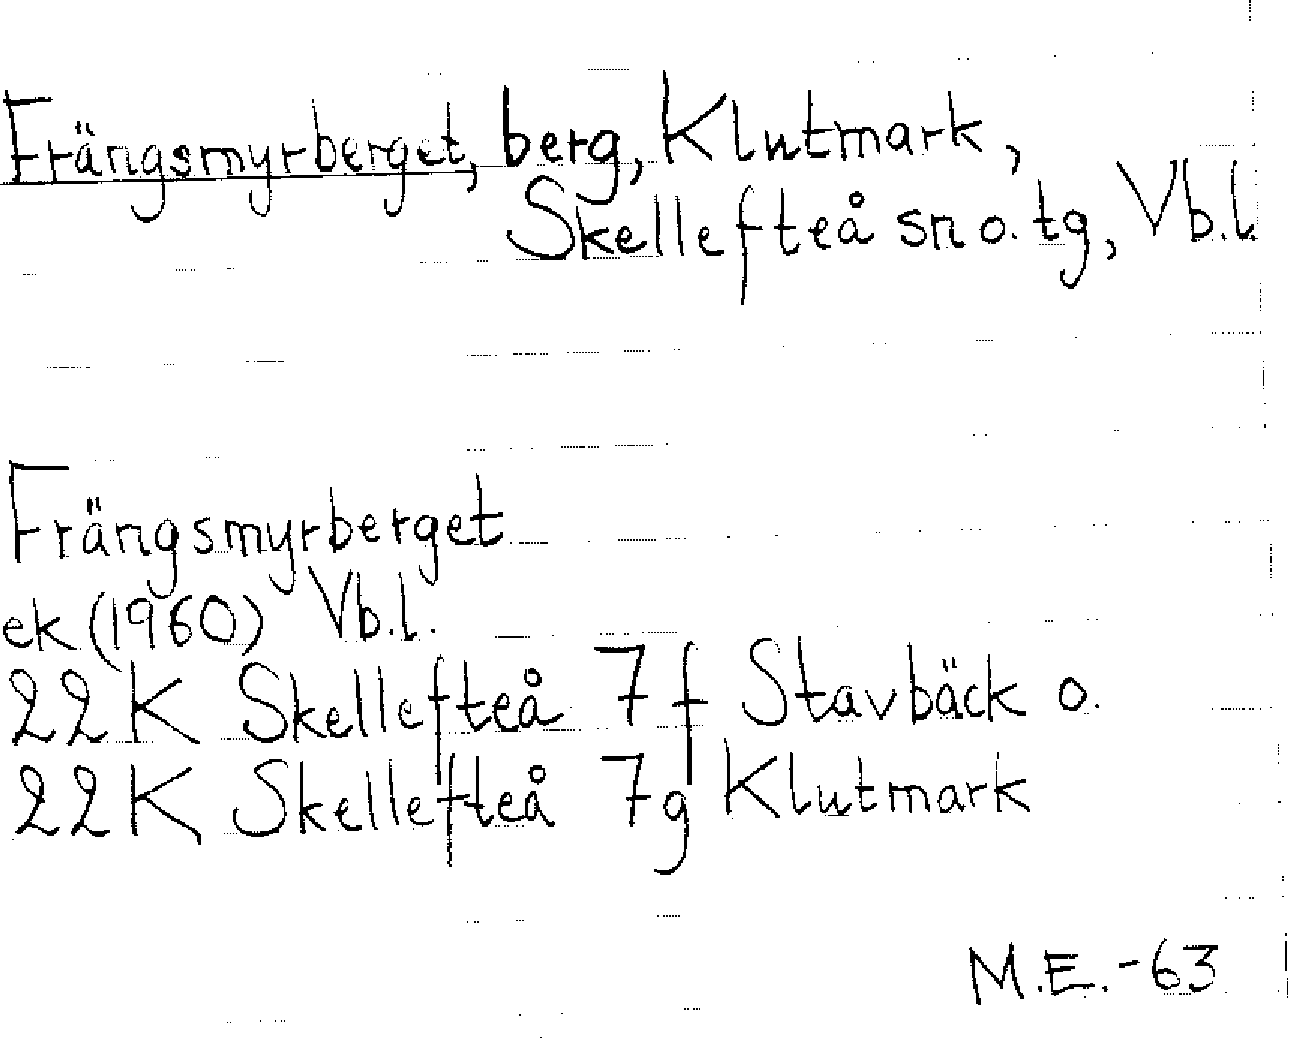 Frängsmyrberget, berg, Klutmark,
Skellefteå sn o. tg, Vb.l.
Frängsmyrberget
ek (1960) Vb.l.
22K Skellefteå 7f Stavbäck o.
22K Skellefteå 7g Klutmark
M.E.-63